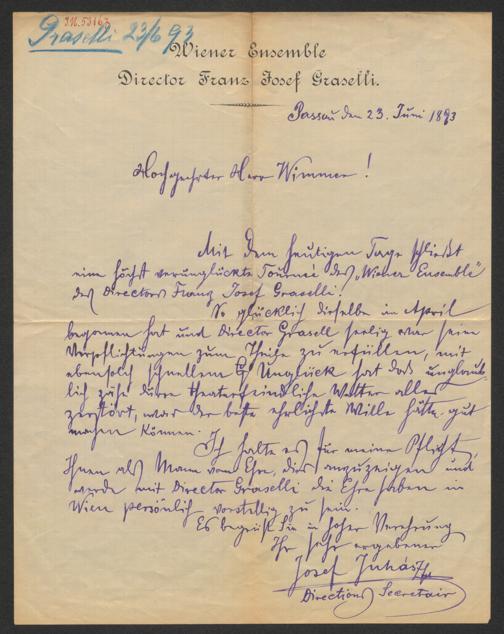 I.N. 53163
Graselli 23/6 93
Wiener Ensemble
Director Franz Josef Graselli.
Passau den 23. Juni 1893
Hochgeehrter Herr Wimmer!
Mit dem heutigen Tage schließt
eine höchst verunglückte Tournée des „Wiener Ensemble"
des Directors Franz Josef Graselli!
So glücklich dieselbe im April
begonnen hat und Director Graselli seelig war seine
Verpflichtungen zum Theile zu erfüllen, mit
ebensolch schnellem Unglück hat das unglaub-
lich zähe dürre theaterfeindliche Wetter alles
zerstört, was der beste ehrlichste Wille hätte gut
machen können.
Ich halte es für meine Pflicht,
Ihnen als Mann von Ehre, dies anzuzeigen und
werde mit Director Graselli die Ehre haben in
Wien persönlich vorstellig zu sein.
Es begrüßt Sie in hoher Verehrung
Ihr sehr ergebener
Josef Juhász
Directions Secretair